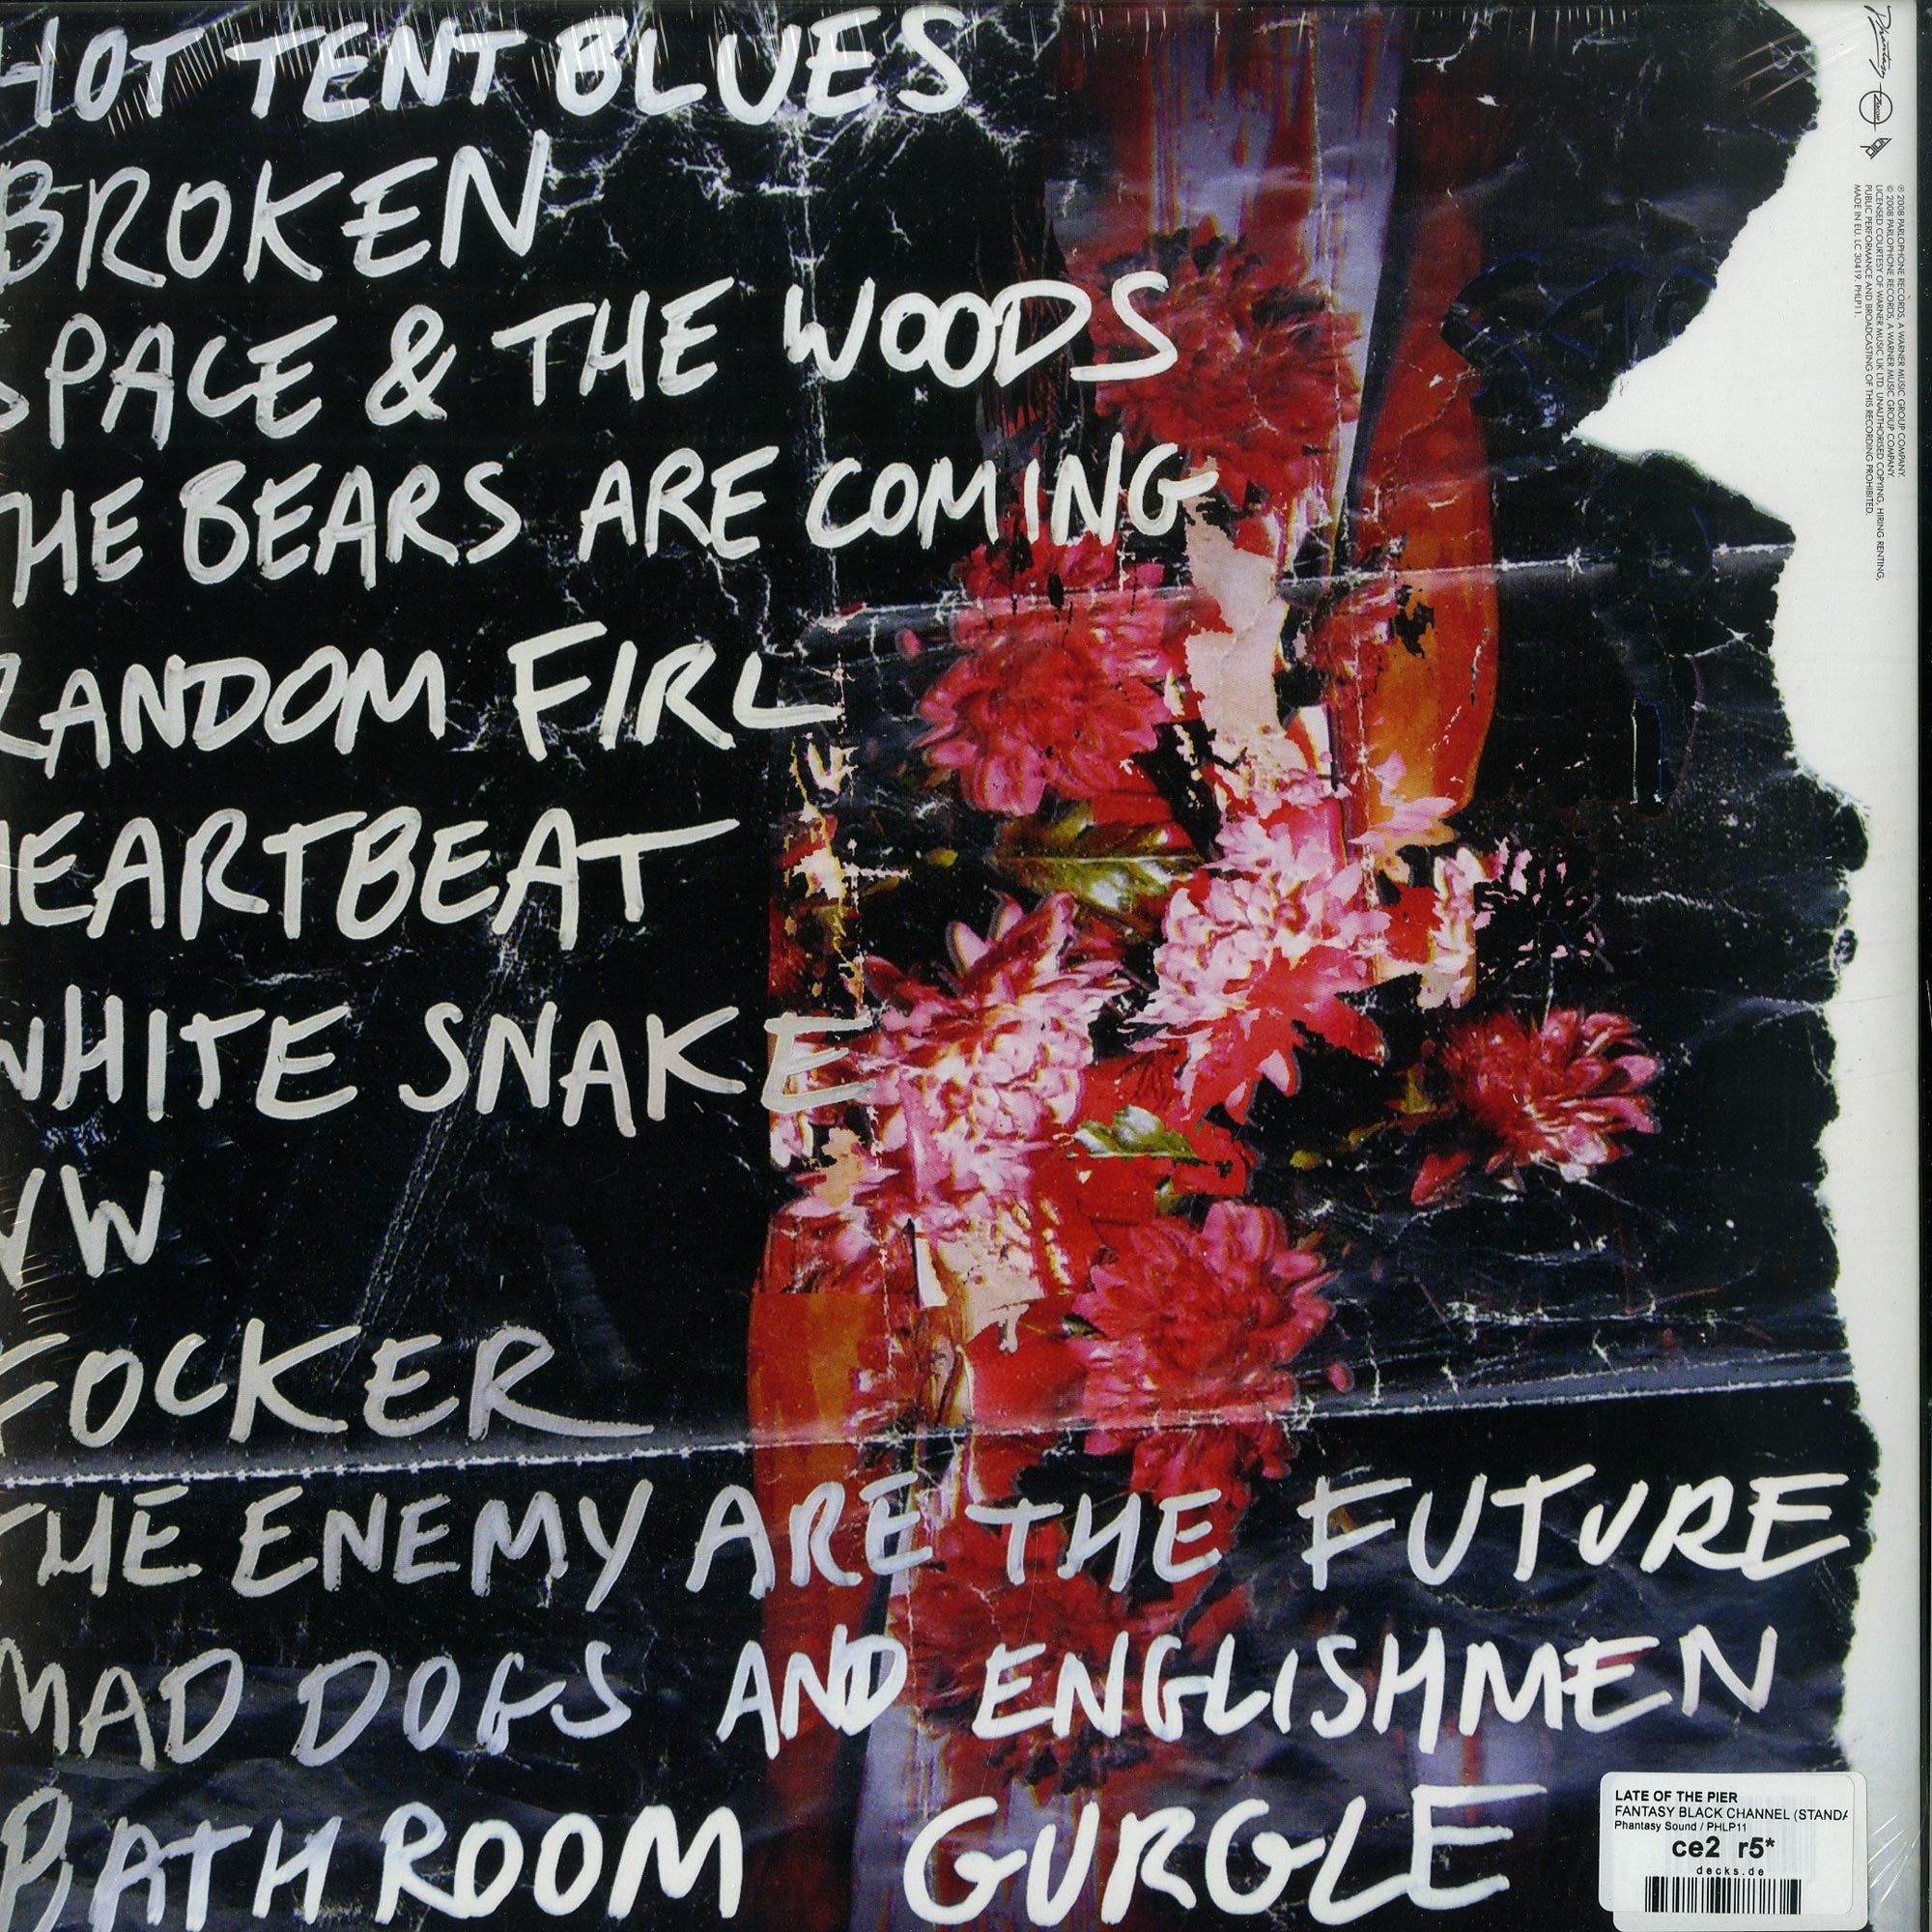 HOT TENT BLUES
BROKEN
SPACE & THE WOODS
THE BEARS ARE COMING
RANDOM FIRL
HEARTBEAT
WHITE SNAKE
VW
FOCKER
THE ENEMY ARE THE FUTURE
MAD DOGS AND ENGLISHMEN
BATHROOM GURGLE
Phantasy
℗ 2008 PARLOPHONE RECORDS, A WARNER MUSIC GROUP COMPANY.
© 2008 PARLOPHONE RECORDS, A WARNER MUSIC GROUP COMPANY.
LICENSED COURTESY OF WARNER MUSIC UK LTD. UNAUTHORISED COPYING, HIRING RENTING,
PUBLIC PERFORMANCE AND BROADCASTING OF THIS RECORDING PROHIBITED.
MADE IN EU. LC 30419. PHLP11.
LATE OF THE PIER
FANTASY BLACK CHANNEL (STANDA
Phantasy Sound / PHLP11
ce2 r5*
decks.de